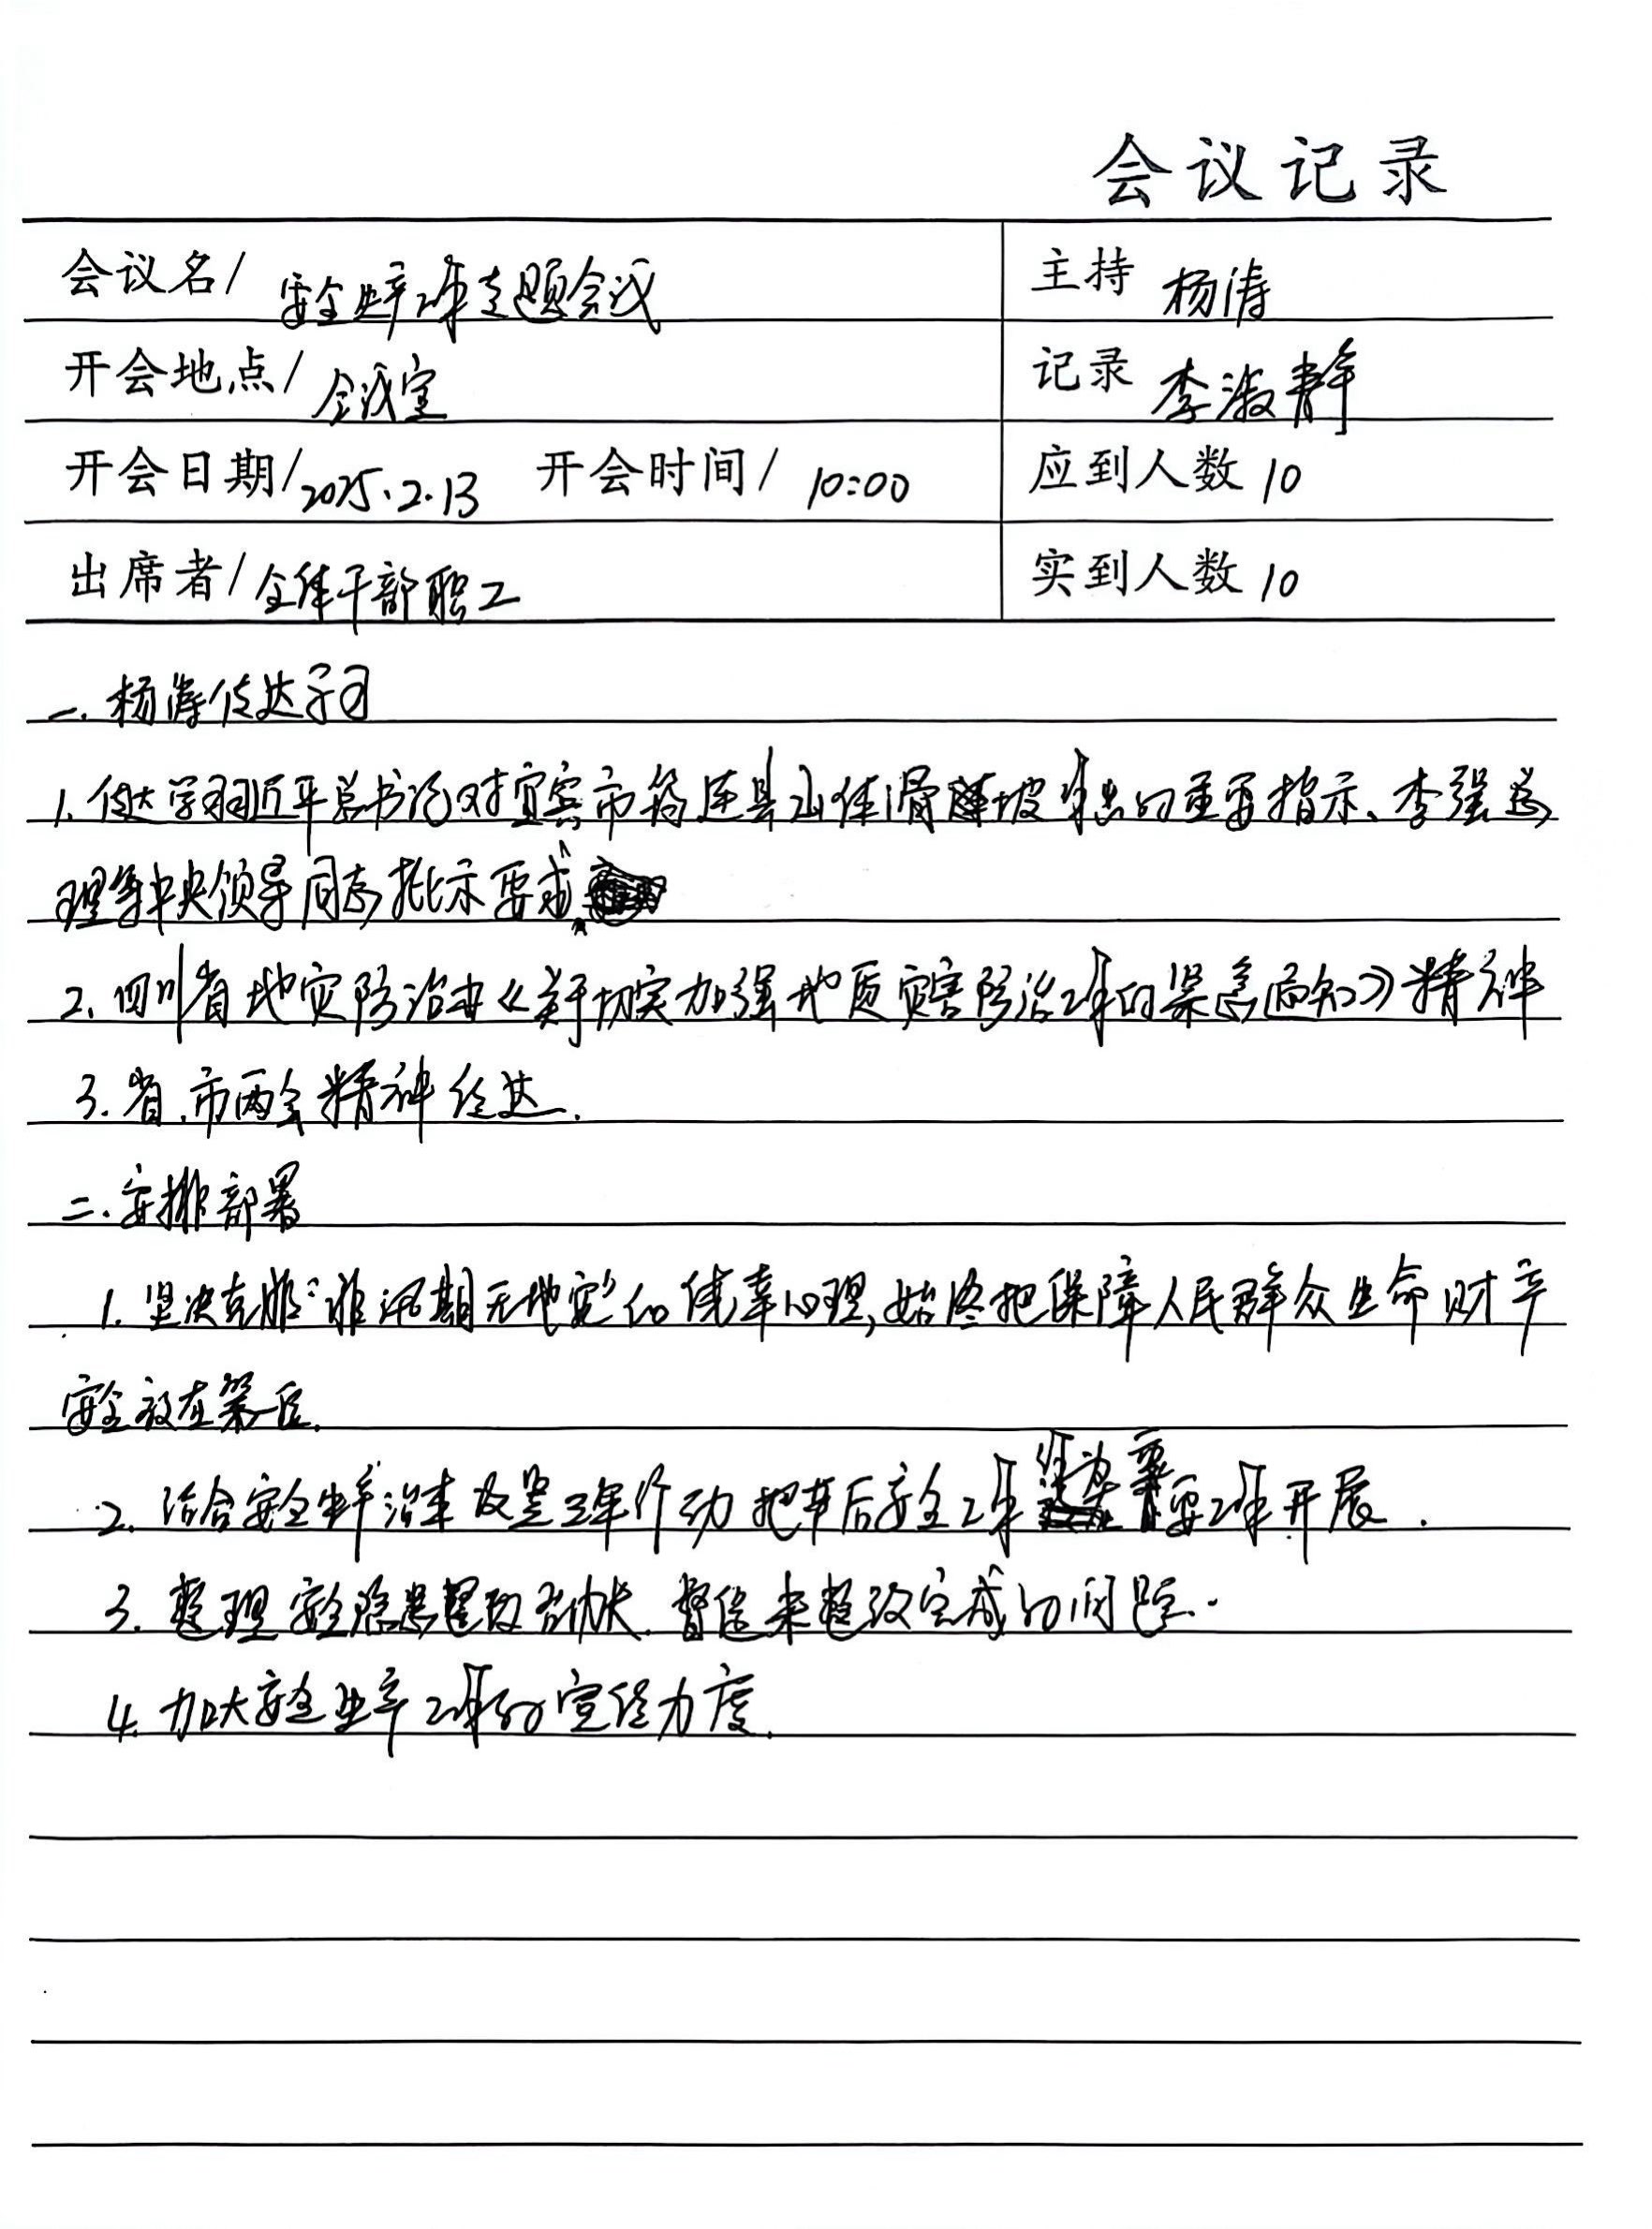 会议记录
会议名/ 安全生产工作专题会议 主持 杨涛
开会地点/ 会议室 记录 李淑静
开会日期/ 2025.2.13 开会时间/ 10:00 应到人数 10
出席者/ 全体干部职工 实到人数 10
一. 杨涛传达学习
1. 传达学习习近平总书记对宜宾市筠连县山体滑坡作出的重要指示、李强总
理等中央领导同志批示要求
2. 四川省地灾防治办《关于切实加强地质灾害防治工作的紧急通知》精神
3. 省、市两会精神传达.
二. 安排部署
1. 坚决克服“非汛期无地灾”的侥幸心理, 始终把保障人民群众生命财产
安全放在第一位.
2. 结合安全生产治本攻坚三年行动 把节后安全工作作为重要工作开展.
3. 整理安全隐患整改台帐. 督促未整改完成的问题.
4. 加大安全生产工作的宣传力度.